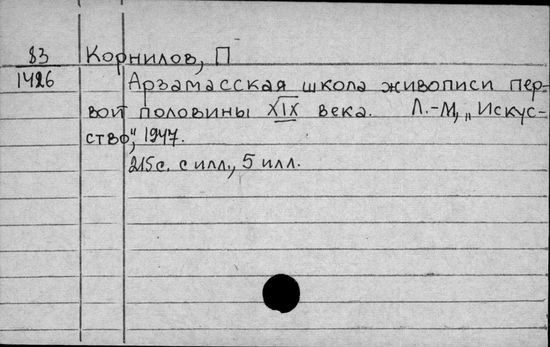 83 Корнилов, П
1426 Арзамасская школа живописи пер-
вой половины XIX века. Л.-М, „Искус-
ство", 1947.
215с. с илл., 5 илл.